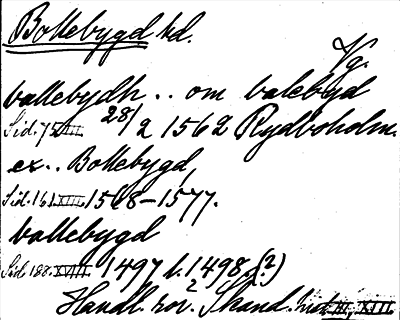 Bollebygd hd.
Vg.
ballebydh .. om balebyd
Sid. 75 28/2 1562 Rydboholm.
ex.. Bollebygd,
Sid. 161 XIII. 1568–1577.
bollebygd
Sid. 188. XVIII. 1497 l. 1498. (?)
Handl. rör. Skand. hist. III, XIII